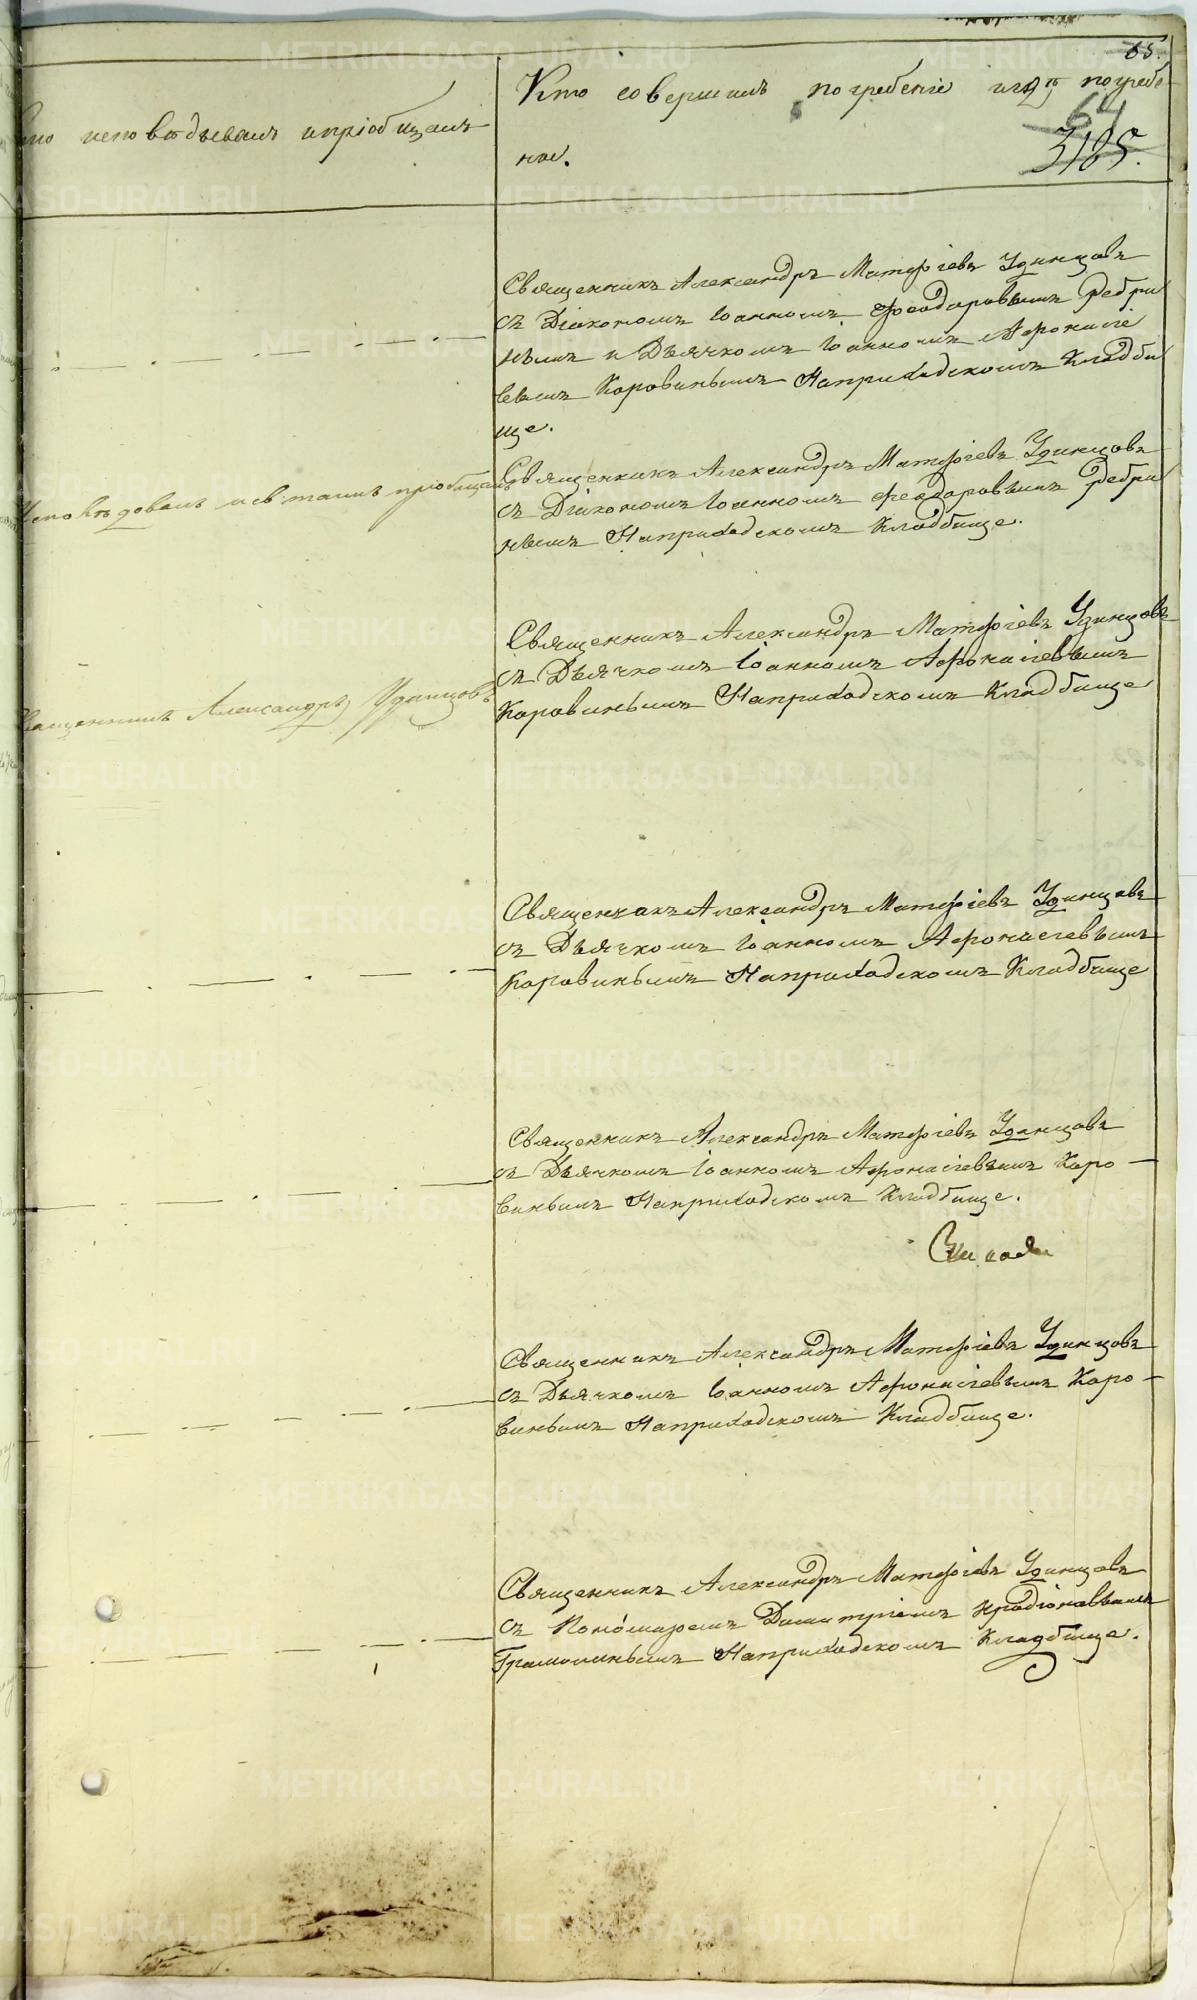 65.
64
3185.
Кто исповѣдывалъ и пріобщалъ
Кто совершилъ погребеніе и гдѣ погребе-
ны.
Священникъ Александръ Матфіевъ Удинцовъ
съ Діакономъ Іоанномъ Феодоровымъ Ребри
нымъ и Дьячкомъ Іоанномъ Афонасіе
вымъ Коровинымъ На приходскомъ Кладби
ще.
Исповѣдовалъ и св. таинъ пріобщалъ
Священникъ Александръ Матфіевъ Удинцовъ
съ Діакономъ Іоанномъ Феодоровымъ Ребри
нымъ На приходскомъ Кладбище.
Священникъ Александръ Удинцовъ
Священникъ Александръ Матфіевъ Удинцовъ
съ Дьячкомъ Іоанномъ Афонасіевымъ
Коровинымъ На приходскомъ Кладбище
Священникъ Александръ Матфіевъ Удинцовъ
съ Дьячкомъ Іоанномъ Афонасіевымъ
Коровинымъ На приходскомъ Кладбище
Священникъ Александръ Матфіевъ Удинцовъ
съ Дьячкомъ Іоанномъ Афонасіевымъ Коро—
винымъ На приходскомъ Кладбище.
Священникъ Александръ Матфіевъ Удинцовъ
съ Дьячкомъ Іоанномъ Афонасіевымъ Коро—
винымъ На приходскомъ Кладбище.
Священникъ Александръ Матфіевъ Удинцовъ
съ Пономаремъ Димитріемъ Иродіоновымъ
На приходскомъ Кладбище.
METRIKI.GASO-URAL.RU